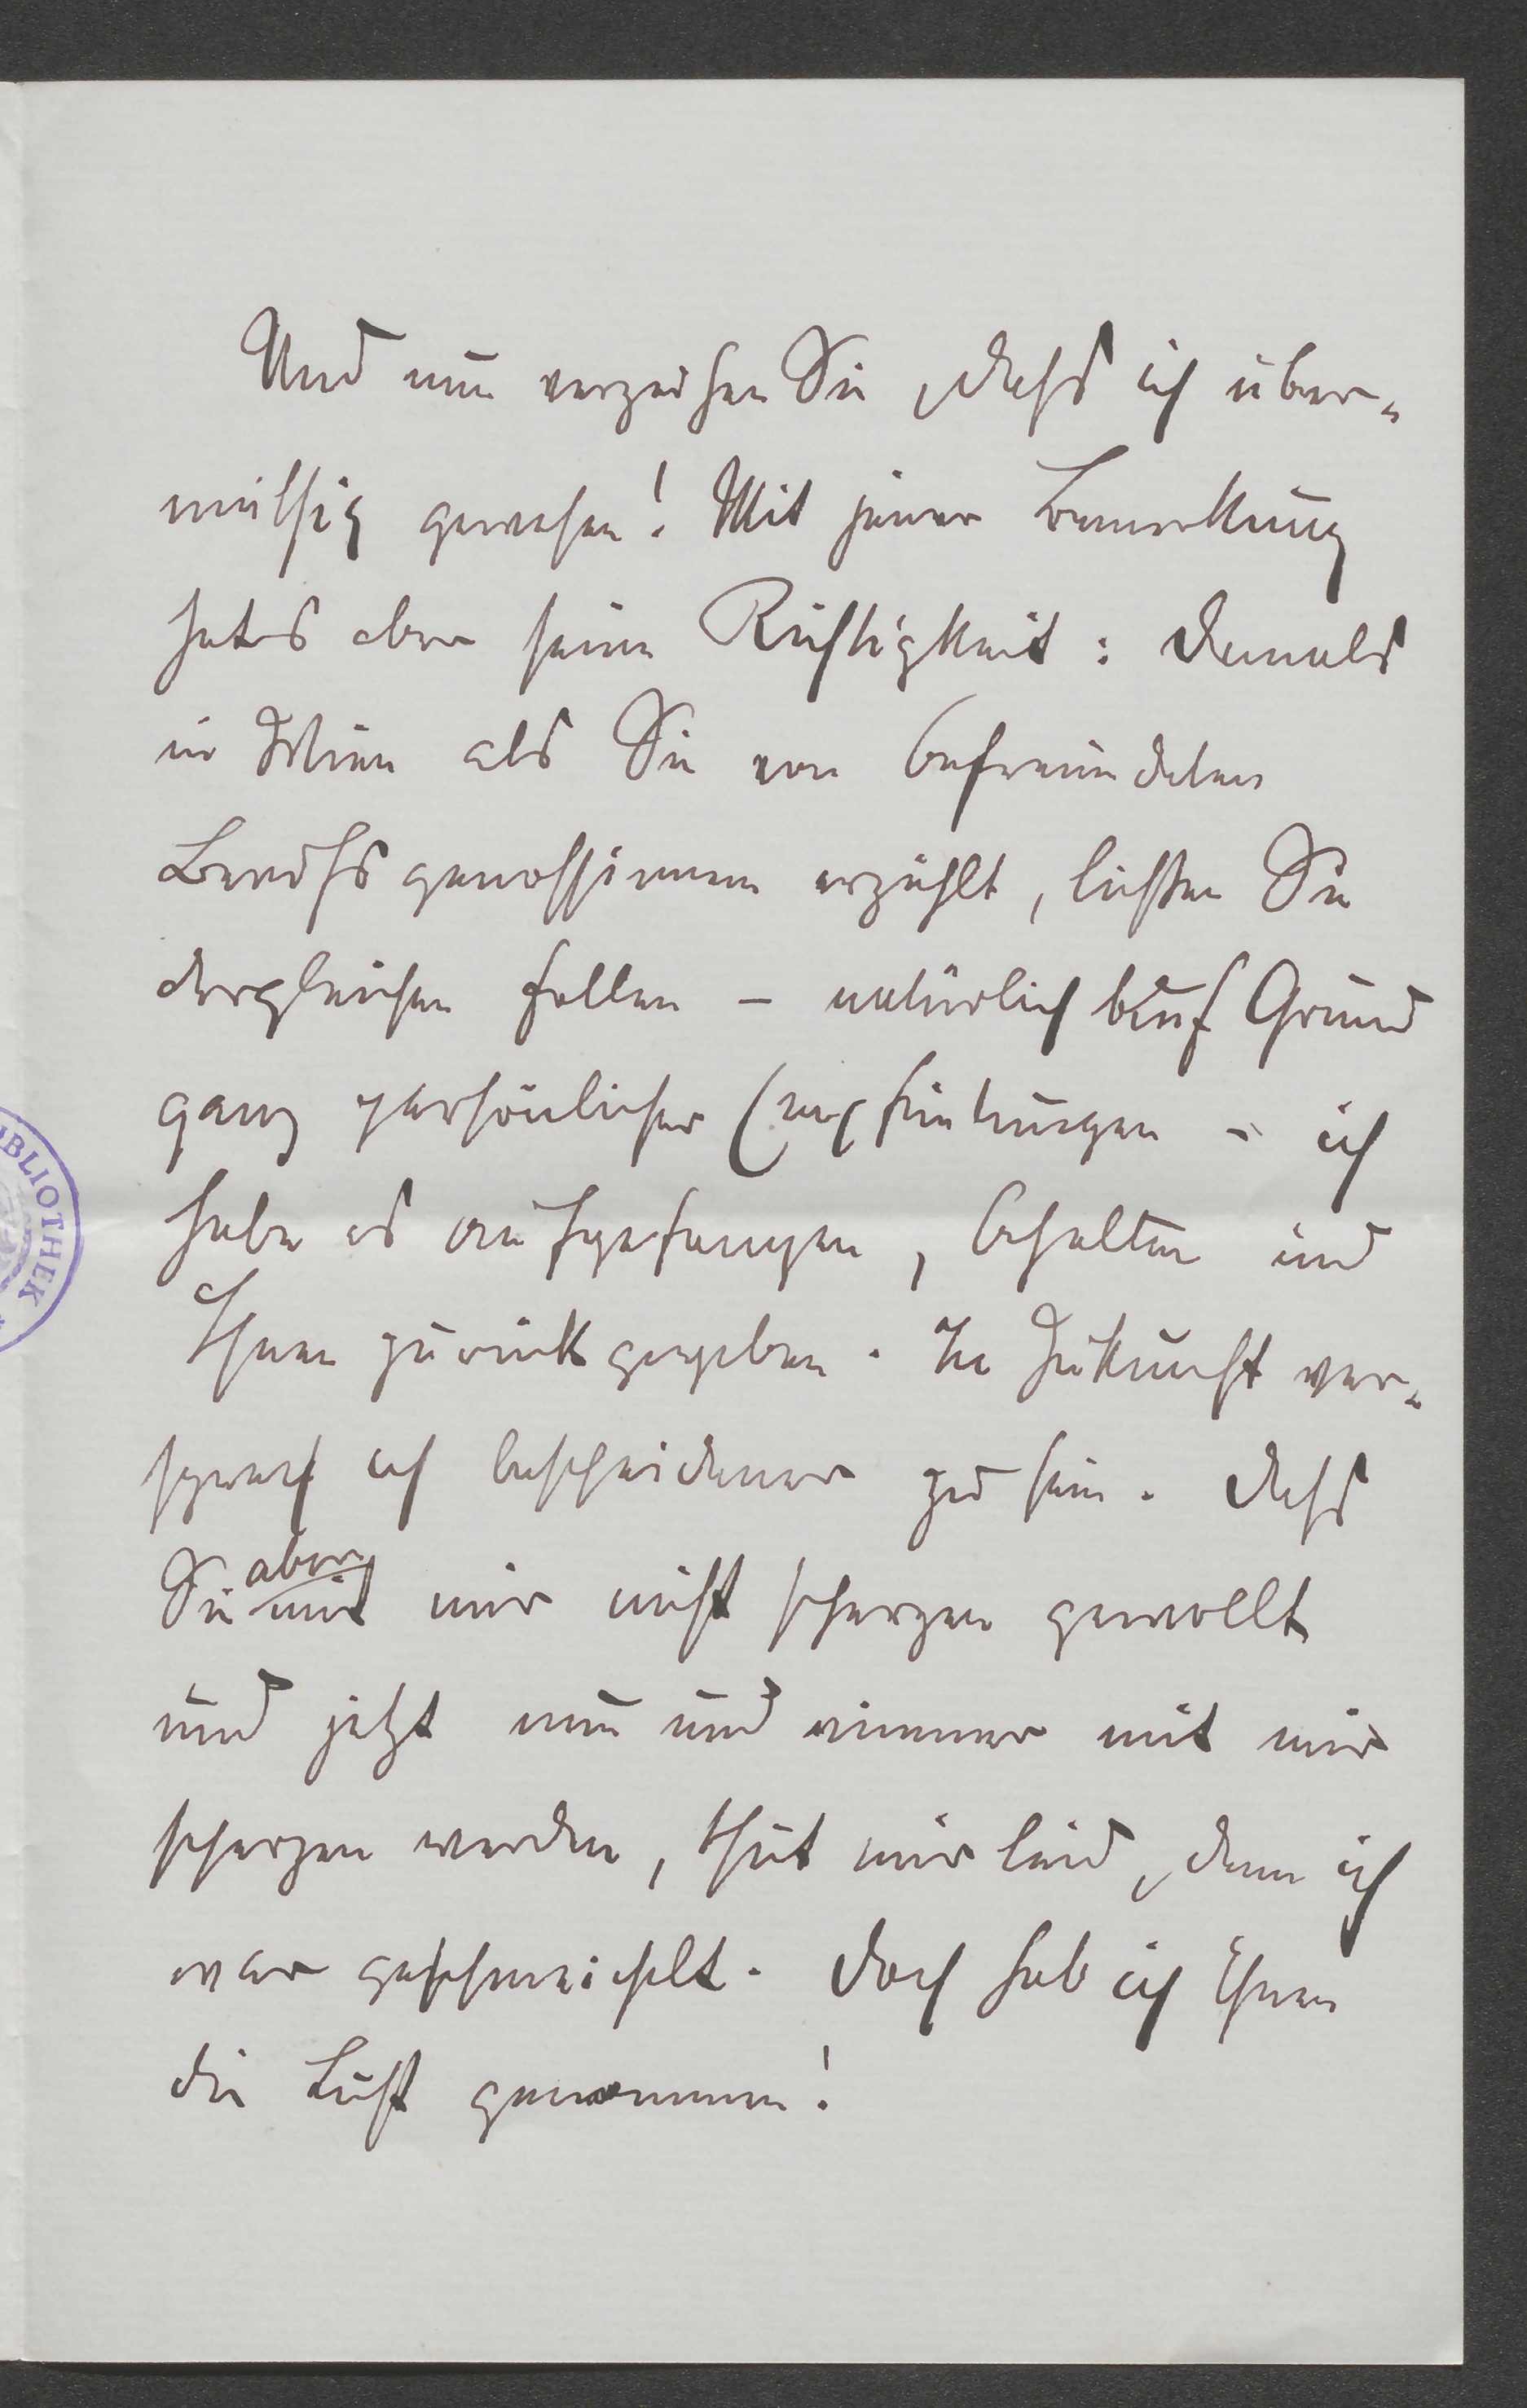 Und nun verzeihen Sie, dass ich über-
müthig gewesen! Mit jener Bemerkung
hat's aber seine Richtigkeit: damals
in Wien als Sie von befreundeten
Berufsgenossinnen erzählt, ließen Sie
dergleichen fallen – natürlich auf Grund
ganz persönlicher Empfindungen – ich
habe es aufgefangen, behalten und
Ihnen zurückgegeben. In Zukunft ver-
sprech ich bescheidener zu sein. Dass
Sie aber mit mir nicht scherzen gewollt
und jetzt nun und nimmer mit mir
scherzen werden, thut mir leid, denn ich
war geschmeichelt. Doch hab ich Ihnen
die Lust genommen!
BIBLIOTHEK